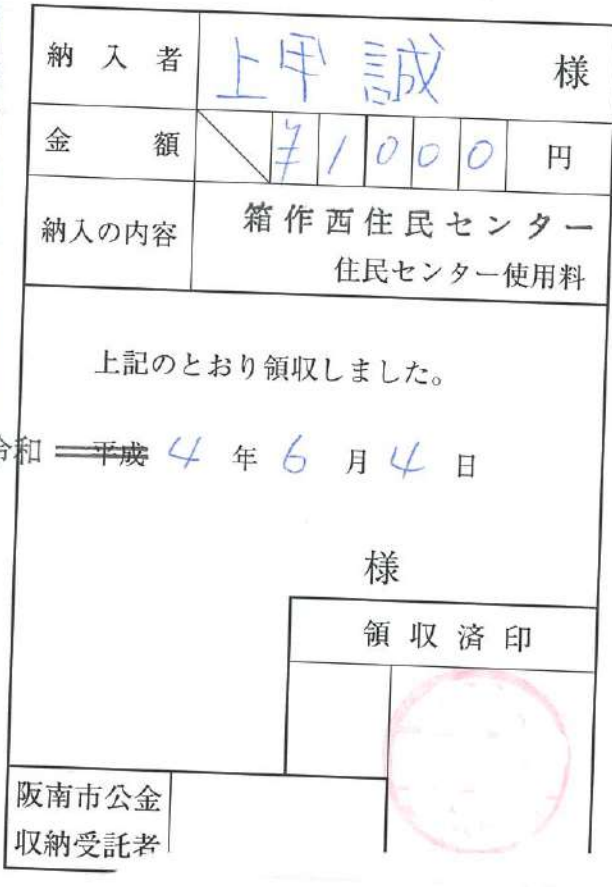 納入者 上甲 誠 様
金額 ¥1000 円
納入の内容 箱作西住民センター
住民センター使用料
上記のとおり領収しました。
令和 平成 4 年 6 月 4 日
様
領収済印
阪南市公金
収納受託者